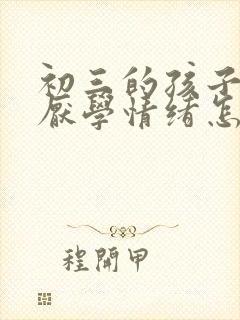 初三的孩子
厭學情绪怎
程開甲